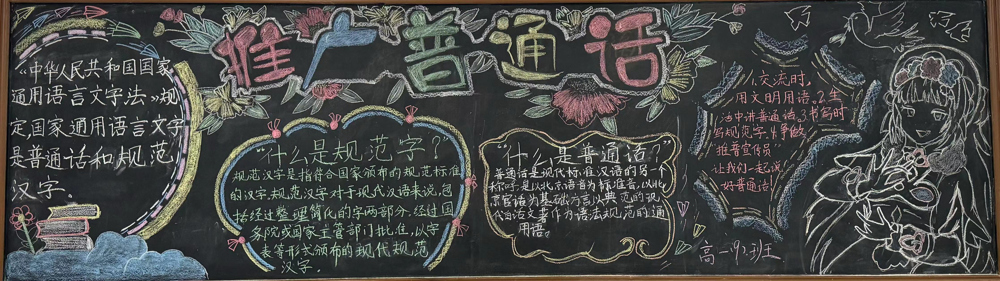 推广普通话
“中华人民共和国国家
通用语言文字法》规
定国家通用语言文字
是普通话和规范
汉字.
“什么是规范字？”
规范汉字是指符合国家颁布的规范标准
的汉字.规范汉字对于现代汉语来说,包
括经过整理简化的字两部分.经过国
务院或国家主管部门批准,以字
表等形式颁布的现代规范
汉字.
“什么是普通话？”
普通话是现代标准汉语的另一个
称呼,是以北京语音为标准音,以北
京官话为基础方言,以典范的现
代白话文著作为语法规范的通
用语。
1.交流时,
用文明用语.2.生
活中讲普通话.3.书写时
写规范字.4.争做
“推普宣传员”
让我们一起说
好普通话!
高一(9)班